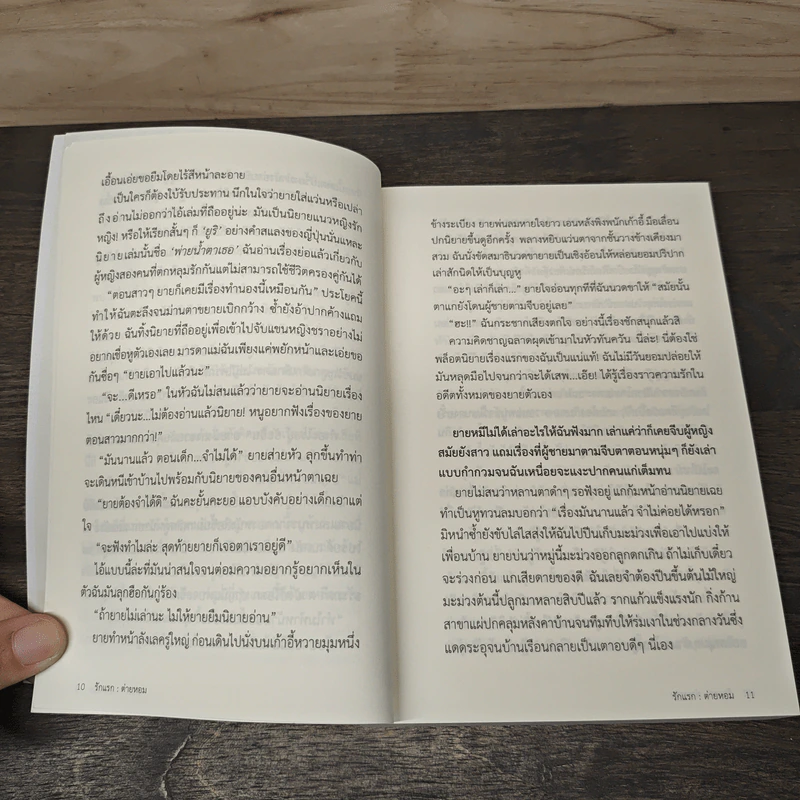 เอื้อนเอ่ยขอยืมโดยไร้สีหน้าละอาย
เป็นใครก็ต้องใบ้รับประทาน นึกในใจว่ายายใส่แว่นหรือเปล่า
ถึงอ่านไม่ออกว่าไอ้เล่มที่ถืออยู่น่ะ มันเป็นนิยายแนวหญิงรัก
หญิง! หรือให้เรียกสั้นๆ ก็ ‘ยูริ’ อย่างคำสแลงของญี่ปุ่นนั่นแหละ
นิยายเล่มนั้นชื่อ ‘พ่ายน้ำตาเธอ’ ฉันอ่านเรื่องย่อแล้วเกี่ยวกับ
ผู้หญิงสองคนที่ตกหลุมรักกันแต่ไม่สามารถใช้ชีวิตครองคู่กันได้
“ตอนสาวๆ ยายก็เคยมีเรื่องทำนองนี้เหมือนกัน” ประโยคนี้
ทำให้ฉันตะลึงจนม่านตาขยายเบิกกว้าง ซ้ำยังอ้าปากค้างแถม
ให้ด้วย ฉันทิ้งนิยายที่ถืออยู่เพื่อเข้าไปจับแขนหญิงชราอย่างไม่
อยากเชื่อหูตัวเองเลย มารดาแม่ฉันเพียงแค่พยักหน้าและเอ่ยขอ
กันซื่อๆ “ยายเอาไปแล้วนะ”
“จะ...ดีเหรอ” ในหัวฉันไม่สนแล้วว่ายายจะอ่านนิยายเรื่อง
ไหน “เดี๋ยวนะ...ไม่ต้องอ่านแล้วนิยาย! หนูอยากฟังเรื่องของยาย
ตอนสาวมากกว่า!”
“มันนานแล้ว ตอนเด็ก...จำไม่ได้” ยายส่ายหัว ลุกขึ้นทำท่า
จะเดินหนีเข้าบ้านไปพร้อมกับนิยายของคนอื่นหน้าตาเฉย
“ยายต้องจำได้ดิ” ฉันคะยั้นคะยอ แอบบังคับอย่างเด็กเอาแต่
ใจ
“จะฟังทำไมล่ะ สุดท้ายยายก็เจอตาเราอยู่ดี”
ไอ้แบบนี้ล่ะที่มันน่าสนใจจนต่อมความอยากรู้อยากเห็นใน
ตัวฉันมันลุกฮือกันกู่ร้อง
“ถ้ายายไม่เล่านะ ไม่ให้ยายยืมนิยายอ่าน”
ยายทำหน้าลังเลครู่ใหญ่ ก่อนเดินไปนั่งบนเก้าอี้หวายมุมหนึ่ง
10 รักแรก : ต่ายหอม
ข้างระเบียง ยายพ่นลมหายใจยาว เอนหลังพิงพนักเก้าอี้ มือเลื่อน
ปกนิยายขึ้นดูอีกครั้ง พลางหยิบแว่นตาจากชั้นวางข้างเคียงมา
สวม ฉันนั่งขัดสมาธินวดขายายเป็นเชิงอ้อนให้หล่อนยอมปริปาก
เล่าสักนิดให้เป็นบุญหู
“อะๆ เล่าก็เล่า...” ยายใจอ่อนทุกทีที่ฉันนวดขาให้ “สมัยนั้น
ตาแกยังโดนผู้ชายตามจีบอยู่เลย”
“ฮะ!!” ฉันกระชากเสียงตกใจ อย่างนี้เรื่องชักสนุกแล้วสิ
ความคิดชาญฉลาดผุดเข้ามาในหัวทันควัน นี่ล่ะ! นี่ต้องใช่
พล็อตนิยายเรื่องแรกของฉันเป็นแน่แท้! ฉันไม่มีวันยอมปล่อยให้
มันหลุดมือไปจนกว่าจะได้เสพ...เอ๊ย! ได้รู้เรื่องราวความรักใน
อดีตทั้งหมดของยายตัวเอง
ยายหมีไม่ได้เล่าอะไรให้ฉันฟังมาก เล่าแค่ว่าก็เคยจีบผู้หญิง
สมัยยังสาว แถมเรื่องที่ผู้ชายมาตามจีบตาตอนหนุ่มๆ ก็ยังเล่า
แบบกำกวมจนฉันเหนื่อยจะแงะปากคนแก่เต็มทน
ยายไม่สนว่าหลานตาดำๆ รอฟังอยู่ แกก้มหน้าอ่านนิยายเฉย
ทำเป็นหูทวนลมบอกว่า “เรื่องมันนานแล้ว จำไม่ค่อยได้หรอก”
มิหนำซ้ำยังขับไล่ไสส่งให้ฉันไปปีนเก็บมะม่วงเพื่อเอาไปแบ่งให้
เพื่อนบ้าน ยายบ่นว่าหมู่นี้มะม่วงออกลูกดกเกิน ถ้าไม่เก็บเดี๋ยว
จะร่วงก่อน แกเสียดายของดี ฉันเลยจำต้องปีนขึ้นต้นไม้ใหญ่
มะม่วงต้นนี้ปลูกมาหลายสิบปีแล้ว รากแก้วแข็งแรงนัก กิ่งก้าน
สาขาแผ่ปกคลุมหลังคาบ้านจนทึมทึบให้ร่มเงาในช่วงกลางวันซึ่ง
แดดระอุจนบ้านเรือนกลายเป็นเตาอบดีๆ นี่เอง
รักแรก : ต่ายหอม 11